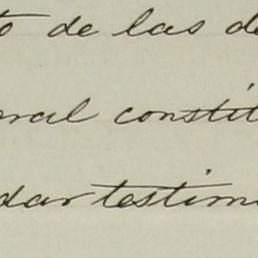 to de las de
oral constit
dar testim